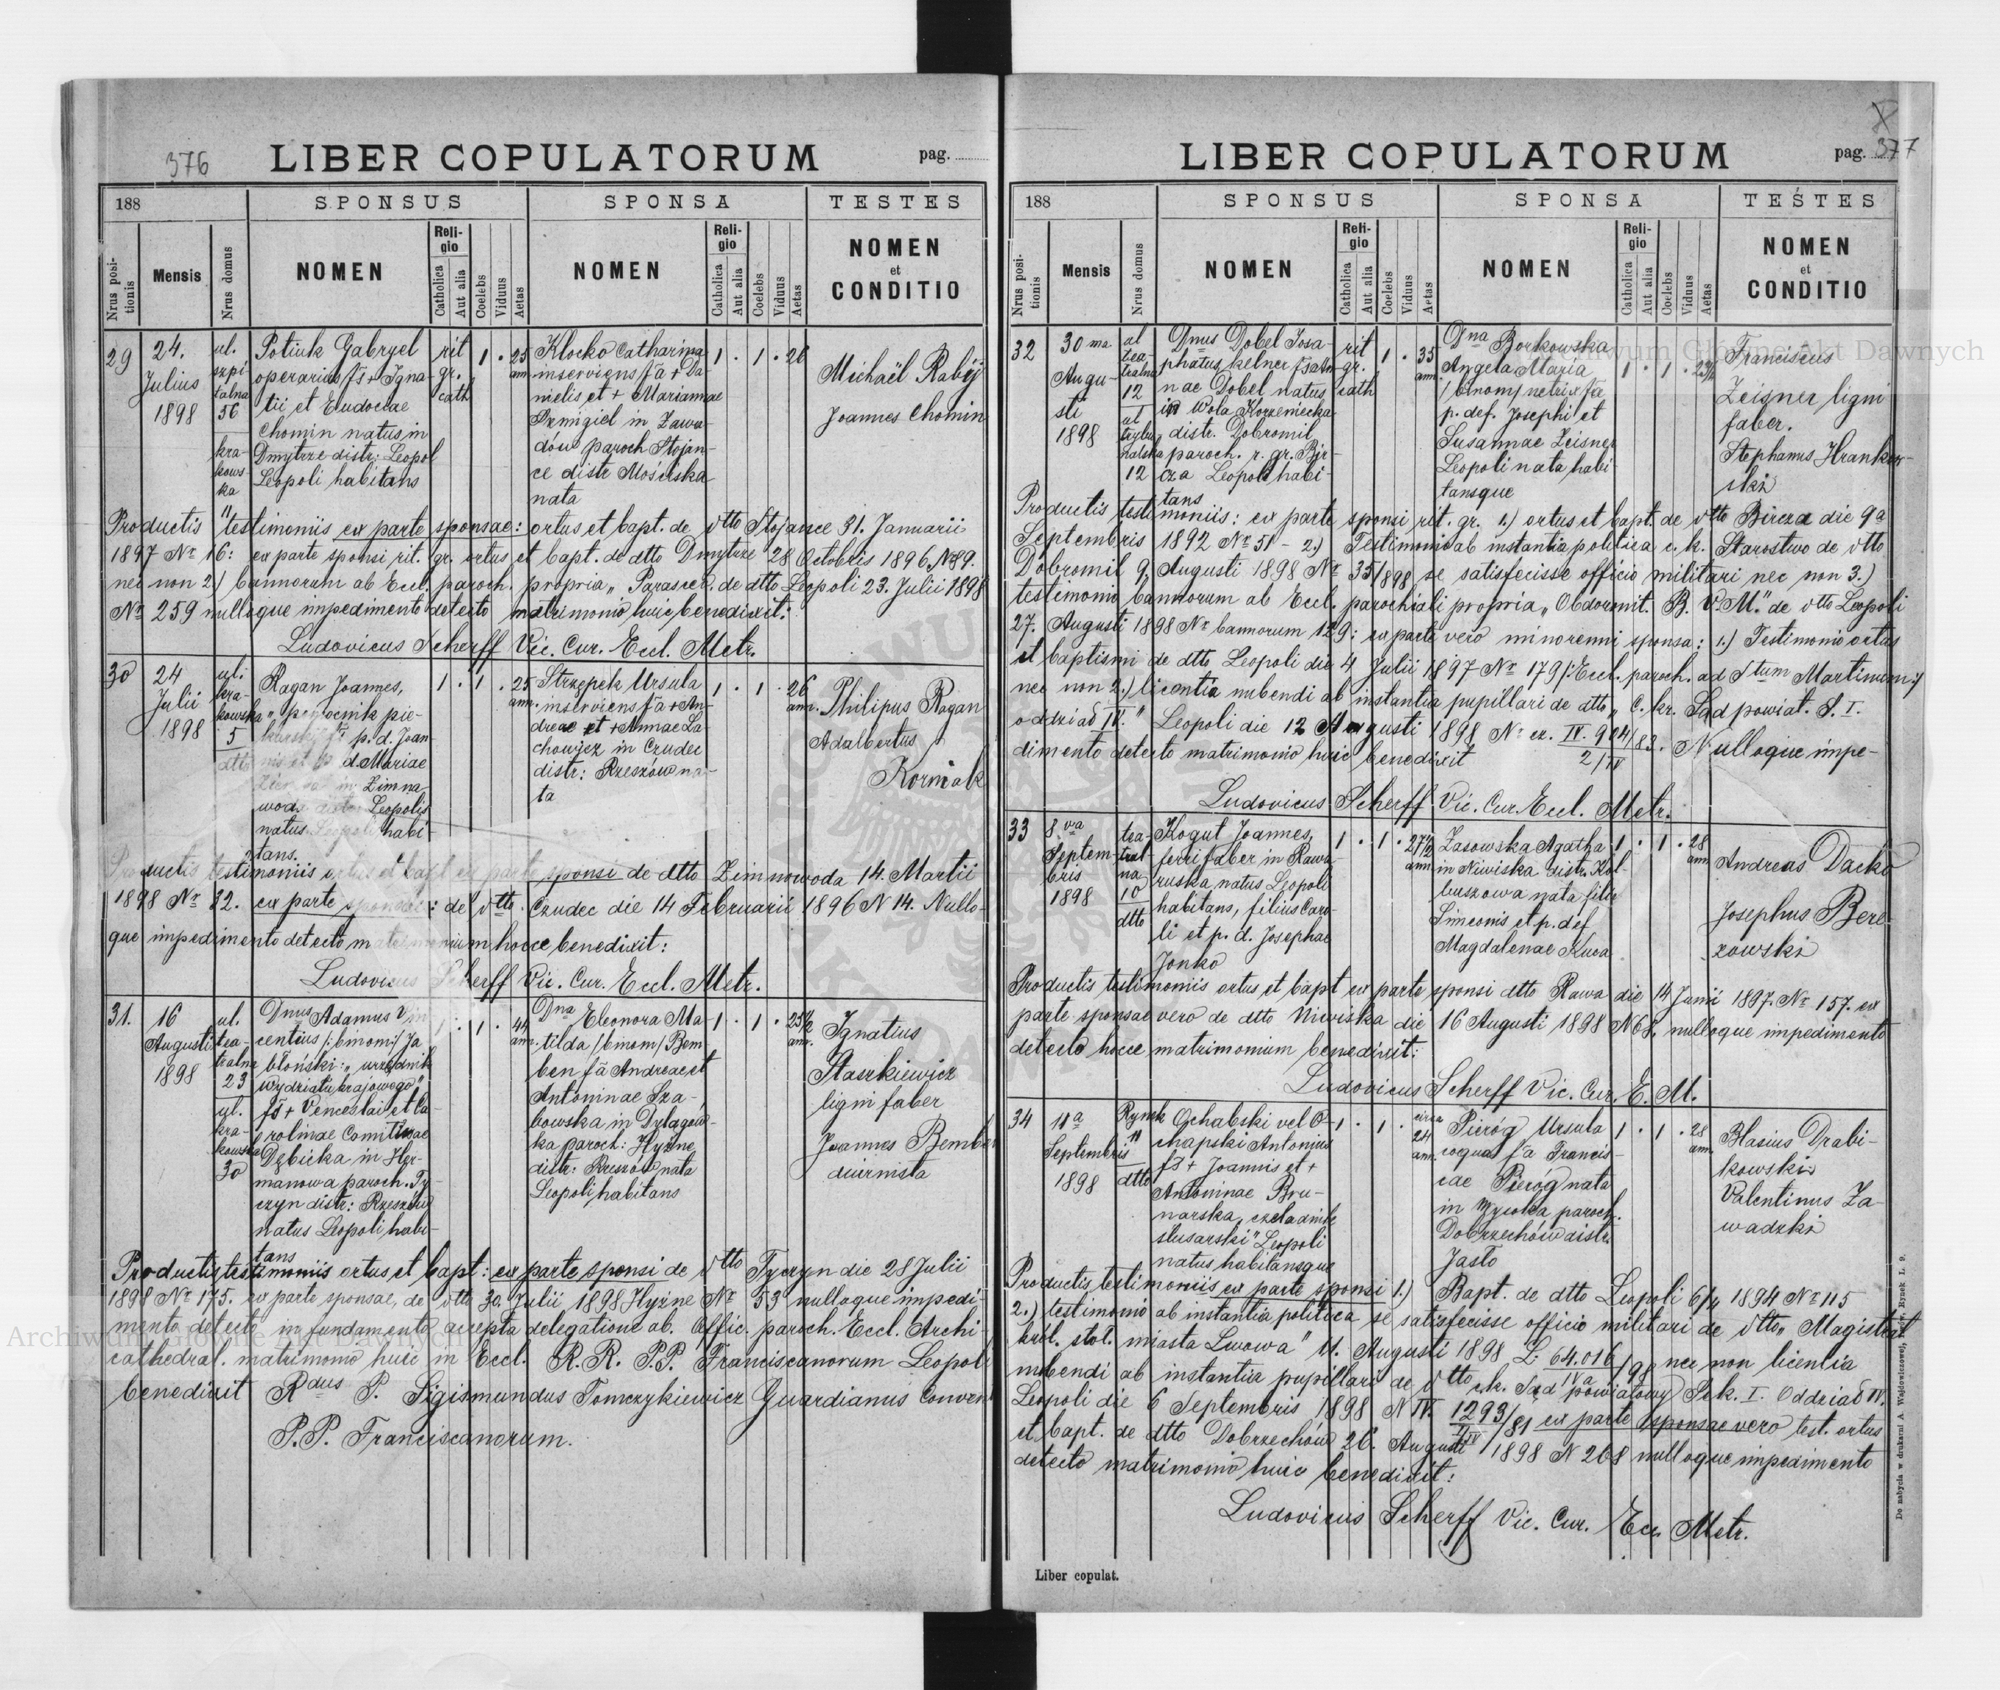 376
LIBER COPULATORUM
pag.
188
SPONSUS
SPONSA
TESTES
Nrus positionis
Mensis
Nrus domus
NOMEN
Religio
Catholica
Aut alia
Coelebs
Viduus
Aetas
NOMEN
Religio
Catholica
Aut alia
Coelebs
Viduus
Aetas
NOMEN
et
CONDITIO
29
24.
Julius
1898
ul.
szpi-
talna
56
kra-
kows-
ka
11
Potiuk Gabryel
operarius fs + Igna-
tii et Eudociae
Chomin natus in
Dmytrze distr: Leopol
Leopoli habitans
rit
gr.
cath
1 . 25
ann.
Klocko Catharina
inserviens fa + Da-
nielis et + Mariannae
Przmigiel in Zawa-
dów paroch Stojan-
ce distr Mościska
nata
1 . 1 . 26
Michaël Rabij
Joannes Chomin
Productis testimoniis ex parte sponsae: ortus et bapt. de dtto Stojance 31. Januarii
1897 Nr 16: ex parte sponsi rit. gr. ortus et bapt. de dtto Dmytrze 28 Octobris 1896 N 89.
nec non 2) bannorum ab Eccl. paroch. propria de dtto Leopoli 23. Julii 1898
Nr 259 nulloque impedimento detecto matrimonio huic benedixit:
Ludovicus Scherff Vic. Cur. Eccl. Metr.
30
24
Julii
1898
ul.
kra-
kowska
5
dtto
Ragan Joannes,
„pomocnik pie-
karski" fs p. d. Joan-
nis et p. d. Mariae
in Zimna
woda Leopolis
natus Leopoli habi-
tans.
1 . 1 . 25
ann.
Strzępek Ursula
inserviens fa + An-
dreae et + Annae La-
chowicz in Czudec
distr: Rzeszów na-
ta
1 . 1 . 26
ann.
Philipus Ragan
Adalbertus
Korniak
Productis testimoniis ortus et bapt ex parte sponsi de dtto Zimnowoda 14. Martii
1898 Nr 32. ex parte sponsae: de dtto Czudec die 14 Februarii 1896 N 14. Nullo-
que impedimento detecto matrimonium hocce benedixit:
Ludovicus Scherff Vic. Cur. Eccl. Metr.
31.
16
Augusti
1898
ul.
tea-
tralna
23
ul.
kra-
kowska
30
Dnus Adamus Vin
centius /:binom:/ Ja
błoński: „urzędnik
wydziału krajowego"
fs + Venceslai et Ca-
rolinae Comitissae
Dębicka in Her-
manowa paroch. Ty-
czyn distr: Rzeszów
natus Leopoli habi-
tans
1 . 1 . 44
ann.
Dna Eleonora Ma-
tilda /binom/ Bem-
ben fa Andreae et
Antoninae Sza-
bowska in Dylągów-
ka paroch: Hyżne
distr: Rzeszów nata
Leopoli habitans
1 . 1 . 25 1/2
ann.
Ignatius
Staszkiewicz
ligni faber
Joannes Bemben
diurnista
Productis testimoniis ortus et bapt: ex parte sponsi de dtto Tyczyn die 28 Julii
1898 Nr 175. ex parte sponsae, de dtto 30. Julii 1898 Hyżne Nr 53 nulloque impedi-
mento detecto in fundamento accepta delegatione ab. Offic. paroch. Eccl. Archi-
cathedral. matrimonio huic in Eccl. R. R. P.P. Franciscanorum Leopoli
benedixit Rdus P. Sigismundus Tomczykiewicz Guardianus Conven
P.P. Franciscanorum.
LIBER COPULATORUM
pag. 377
188
SPONSUS
SPONSA
TESTES
Nrus positionis
Mensis
Nrus domus
NOMEN
Religio
Catholica
Aut alia
Coelebs
Viduus
Aetas
NOMEN
Religio
Catholica
Aut alia
Coelebs
Viduus
Aetas
NOMEN
et
CONDITIO
32
30 ma
Augu-
sti
1898
ul
tea-
tralna
12
1
ul
trybu-
nalska
12
Dnus Dobel Josa-
phatus kelner fs An-
nae Dobel natus
in Wola Korzeniecka
distr. Dobromil
paroch. r. gr. Bir-
cza Leopoli habi-
tans
rit
gr.
cath
1 . 35
ann.
Dna Borkowska
Angela Maria
/binom/ netrix fa
p. def. Josephi et
Susannae Zeisner
Leopoli nata habi-
tansque
1 . 1 . 23 1/2
Franciscus
Zeigner ligni
faber.
Stephanus Hrankow-
ski
Productis testimoniis: ex parte sponsi rit. gr. 1.) ortus et bapt. de dtto Bircza die 9a
Septembris 1892 Nr 51 - 2.) Testimonio ab instantia politica c. k. Starostwo de dtto
Dobromil 9. Augusti 1898 Nr 35/898 se satisfecisse officio militari nec non 3.)
testimonio bannorum ab Eccl. parochiali propria „Obdormit. B. V. M." de dtto Leopoli
27. Augusti 1898 Nr bannorum 129: ex parte vero minorenni sponsa: 1.) Testimonio ortus
et baptismi de dtto Leopoli die 4 Julii 1897 Nr 179/: Eccl. paroch. ad Stum Martinum:/
nec non 2.) licentia nubendi ab instantia pupillari de dtto „C. kr. Sąd powiat. S. I.
oddział IV." Leopoli die 12 Augusti 1898 Nr ex. IV. 904/83. Nulloque impe-
2/IV
dimento detecto matrimonio huic benedixit
Ludovicus Scherff Vic. Cur. Eccl. Metr.
33
8va
Septem-
bris
1898
tea-
tral-
na
10
dtto
Kogut Joannes,
ferri faber in Rawa
ruska natus Leopoli
habitans, filius Caro-
li et p. d. Josephae
Jonko
1 . 1 . 27 1/2
ann.
Zasowska Agatha
in Niwiska distr. Kol-
buszowa nata filia
Simeonis et p. def
Magdalenae Kuca
1 . 1 . 28
ann
Andreas Dacko
Josephus Bere
zowski
Productis testimoniis ortus et bapt ex parte sponsi dtto Rawa die 14 Junii 1897. Nr 157. ex
parte sponsae vero de dtto Niwiska die 16 Augusti 1898 N 68. nulloque impedimento
detecto hocce matrimonium benedixit:
Ludovicus Scherff Vic. Cur. E. M.
34
11a
Septembris
1898
Rynek
11
dtto
Ochabski vel O-
chapski Antonius
fs + Joannis et +
Antoninae Bru-
narska „czeladnik
ślusarski" Leopoli
natus habitansque
1 . 1 . circa
24
ann.
Pieróg Ursula
coqua fa Francis-
cae Pieróg nata
in Wysoka paroch.
Dobrzechów distr.
Jasło
1 . 1 . 28
ann.
Blasius Drabi-
kowski
Valentinus Za-
wadzki
Productis testimoniis ex parte sponsi 1.) Bapt. de dtto Leopoli 6/4 1894 Nr 115
2.) testimonio ab instantia politica se satisfecisse officio militari de dtto „Magistrat
król. stoł. miasta Lwowa" 11. Augusti 1898 L: 64.016/98 nec non licentia
IVa
nubendi ab instantia pupillari de dtto c.k. Sąd powiatowy Sek. I. Oddział IV.
Leopoli die 6 Septembris 1898 N IV. 1293/81 ex parte sponsae vero test. ortus
et bapt. de dtto Dobrzechów 26. Augusti 1898 N 268 nulloque impedimento
detecto matrimonio huic benedixit:
Ludovicus Scherff Vic. Cur. Ecc. Metr.
Liber copulat.
Do nabycia w drukarni A. Wajdowiczowej, Rynek L. 9.
Archiwum Główne Akt Dawnych
Archiwum Główne Akt Dawnych